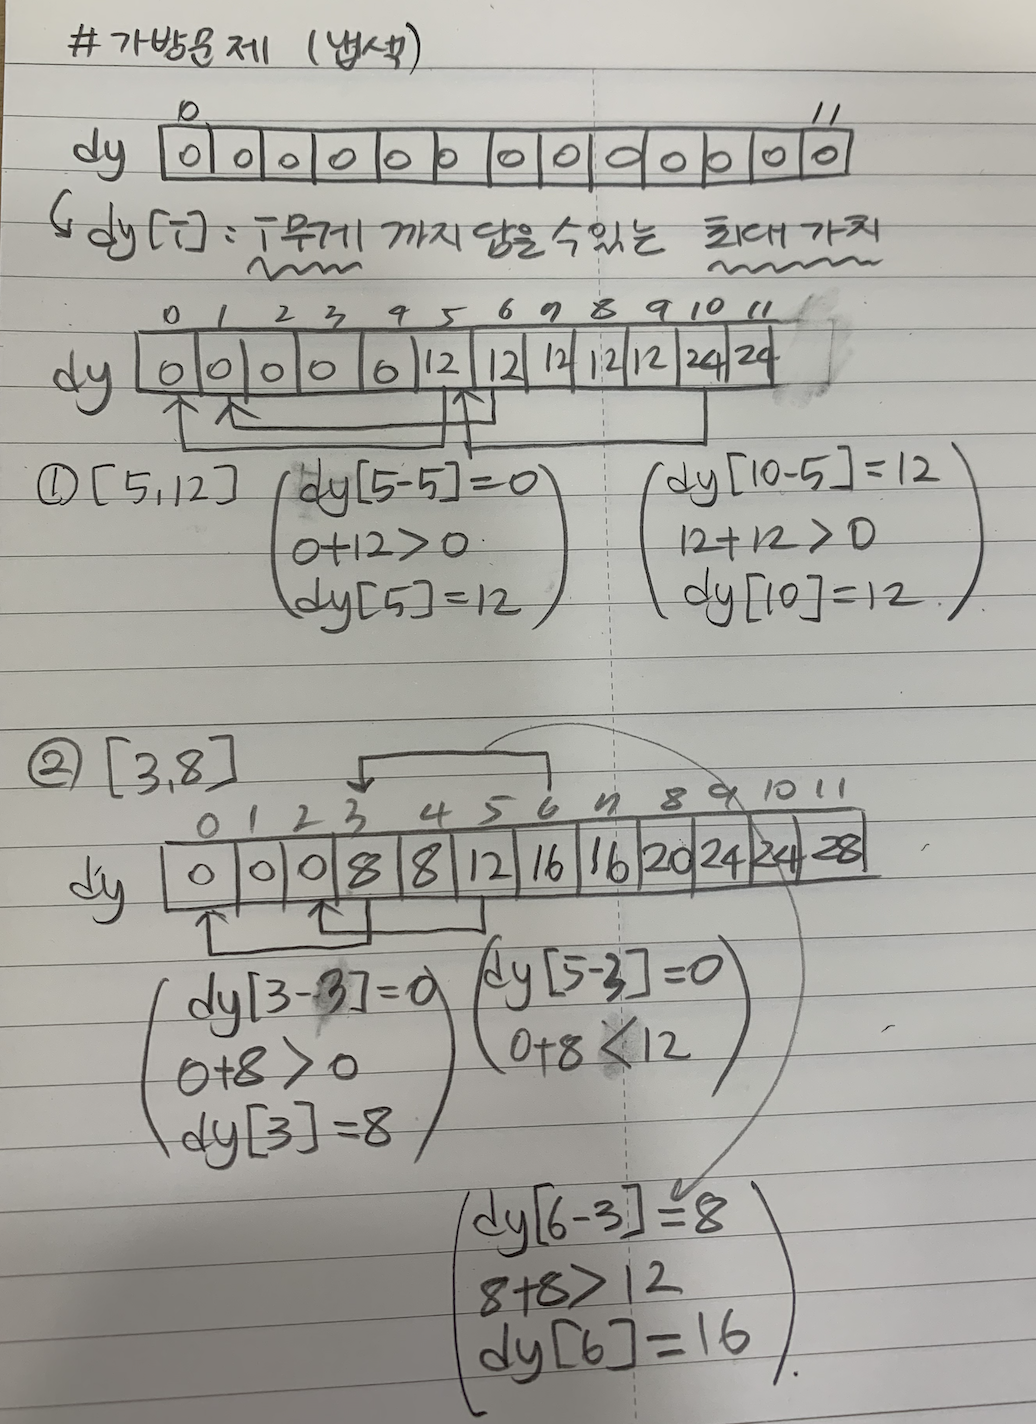 # 가방문제 (냅색)
0 11
dy 0 0 0 0 0 0 0 0 0 0 0 0 0
dy[i] : i 무게 까지 담을수있는 최대 가치
0 1 2 3 4 5 6 7 8 9 10 11
dy 0 0 0 0 0 12 12 12 12 12 24 24
① [5,12]
dy[5-5]=0
0+12>0
dy[5]=12
dy[10-5]=12
12+12>0
dy[10]=12
② [3,8]
0 1 2 3 4 5 6 7 8 9 10 11
dy 0 0 0 8 8 12 16 16 20 24 24 28
dy[3-3]=0
0+8>0
dy[3]=8
dy[5-3]=0
0+8<12
dy[6-3]=8
8+8>12
dy[6]=16